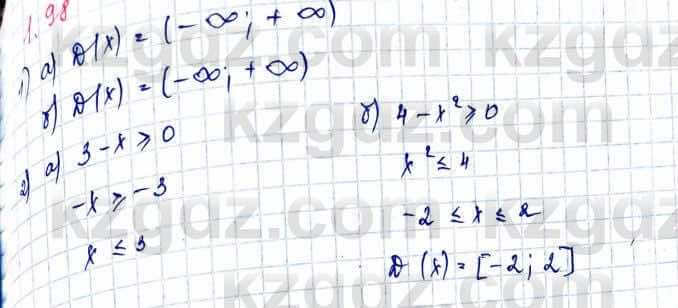 1.98
1) а) D(x) = (-∞; +∞)
б) D(x) = (-∞; +∞)
2) а) 3 - x ⩾ 0
-x ⩾ -3
x ≤ 3
б) 4 - x² ⩾ 0
x² ≤ 4
-2 ≤ x ≤ 2
D(x) = [-2; 2]
kzgdz.com
kzgdz.com
kzgdz.com
kzgdz.com